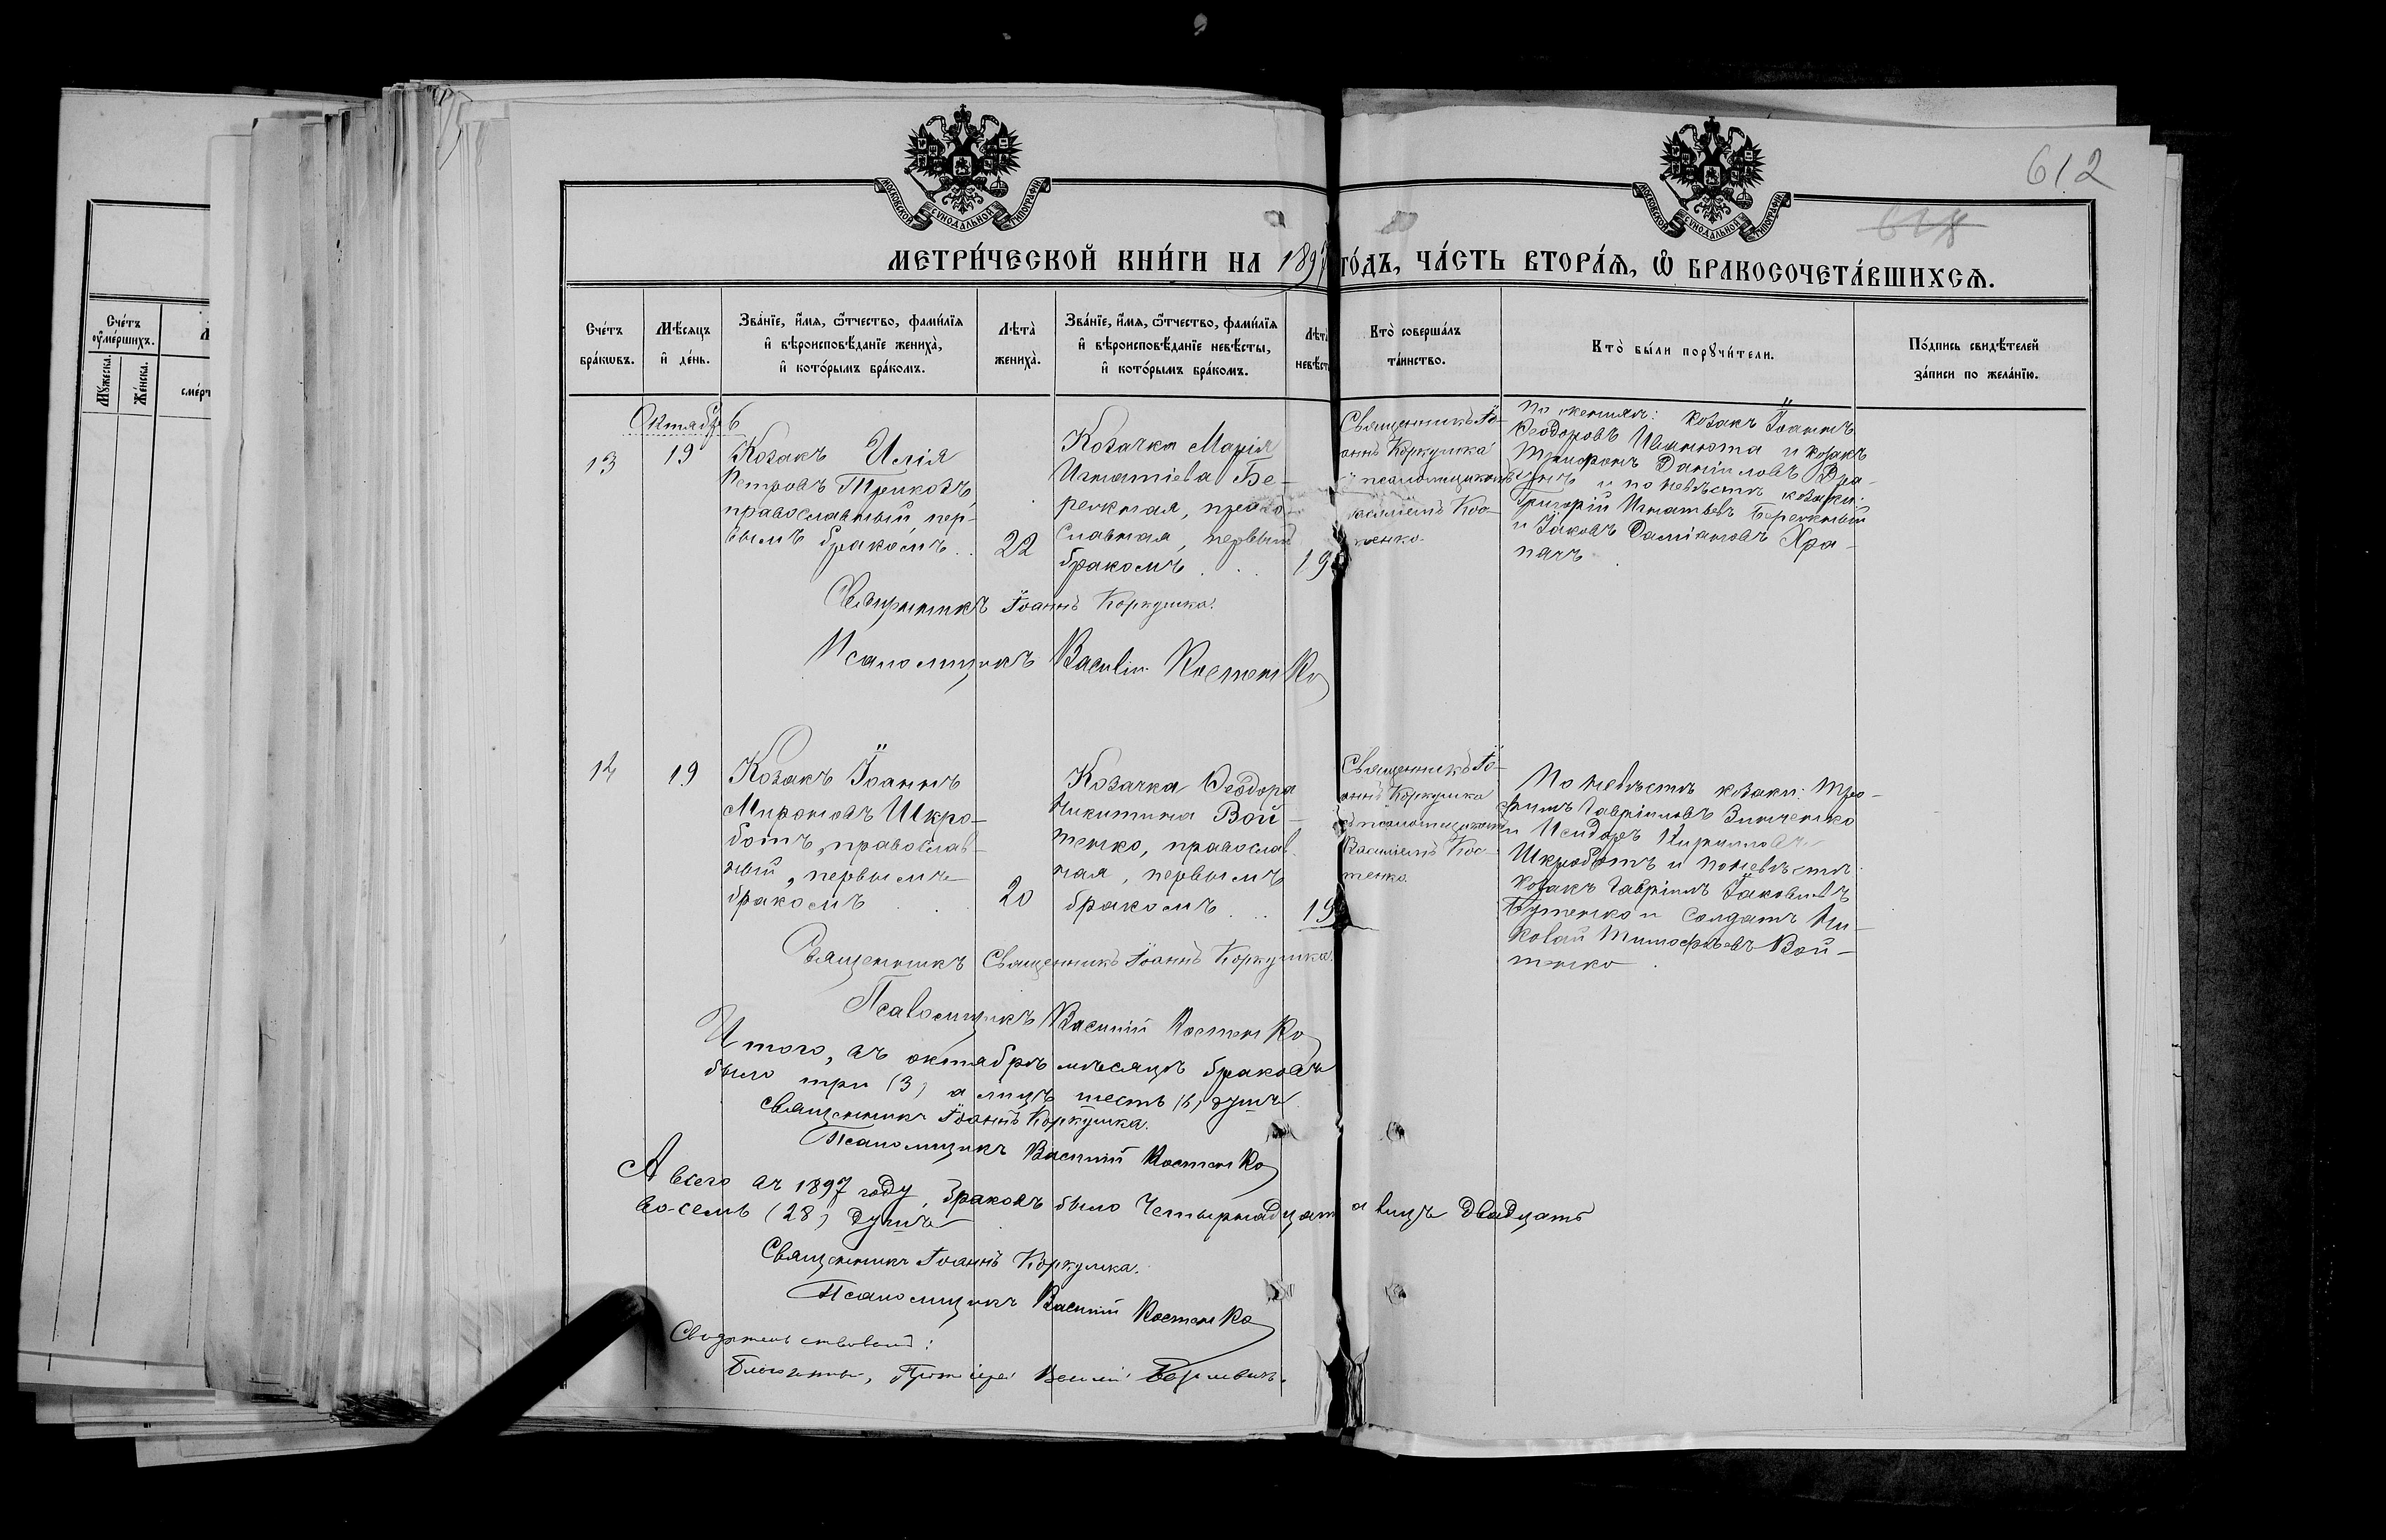 612
МОСКОВСКОЙ СѴНОДАЛЬНОЙ ТИПОГРАФІИ
МОСКОВСКОЙ СѴНОДАЛЬНОЙ ТИПОГРАФІИ
МЕТРИ́ЧЕСКОЙ КНИ́ГИ НА 1897 ГО́ДЪ, ЧА́СТЬ ВТОРА́Я, Ѽ БРАКОСОЧЕТА́ВШИХСѦ.
Сче́тъ
оумершихъ.
Мꙋжеска.
Же́нска.
Сче́тъ
бра́кωвъ.
Мѣ́сяцъ
и҆ де́нь.
Зва́нїе, и҆́мя, ѻ҆́тчество, фами́лїя
и҆ вѣроисповѣ́данїе жениха̀,
и҆ кото́рымъ бра́комъ.
Лѣта̀
жениха̀.
Зва́нїе, и҆́мя, ѻ҆́тчество, фами́лїя
и҆ вѣроисповѣ́данїе невѣ́сты,
и҆ кото́рымъ бра́комъ.
Лѣта̀
невѣ́ст
Кто̀ соверша́лъ
та́инство.
Кто̀ бы́ли порꙋчи́тели.
По́дпись свидѣ́телей
за́писи по жела́нїю.
Октябрь
13
19
Козакъ Илія
Петровъ
православный, пер-
вымъ бракомъ
22
Козачка Марія
Игнатіева Бе-
режная, право-
славная, первымъ
бракомъ
19
Священникъ Іо-
аннъ Коркушка
псаломщикомъ
Василіемъ Кос-
тенко.
По женихѣ: козакъ Іоаннъ
Ѳеодоровъ Иванюта и козакъ
Трифонъ Даніиловъ
и по невѣстѣ козаки:
Григорій Игнатьевъ Бережный
и Іаковъ Даміановъ Хра-
пачъ
Священникъ Іоаннъ Коркушка.
Псаломщикъ Василій Костенко
14
19
Козакъ Іоаннъ
Мироновъ Шкро-
ботъ, православ-
ный, первымъ
бракомъ
20
Козачка Ѳеодора
Никитина Вой-
тенко, православ-
ная, первымъ
бракомъ
19
Священникъ Іо-
аннъ Коркушка
съ псаломщикомъ
Василіемъ Кос-
тенко.
По невѣстѣ козаки: Тро-
фимъ Гавріиловъ Зинченко
и Исидоръ Кирилловъ
Шкроботъ и по невѣстѣ:
козакъ Гавріилъ Іаковлевъ
Бутенко и солдатъ Ни-
колай Тимофѣевъ Вой-
тенко
Священникъ Священникъ Іоаннъ Коркушка.
Псаломщикъ Василій Костенко
Итого, въ октябрѣ мѣсяцѣ браковъ
было три (3) а лицъ шесть (6) душъ
Священникъ Іоаннъ Коркушка.
Псаломщикъ Василій Костенко
А всего въ 1897 году, браковъ было Четырнадцать а лицъ двадцать
во-семь (28) душъ
Священникъ Іоаннъ Коркушка.
Псаломщикъ Василій Костенко
Свидѣтельствовалъ:
Протоіерей Василій